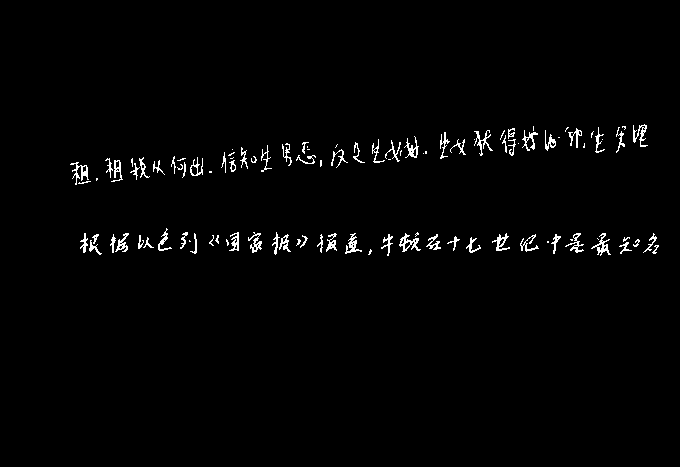 租.租税从何出.信知生男恶,反是生女好.生女犹得嫁比邻,生男埋
根据以色列《国家报》报道,牛顿在十七世纪中是最知名